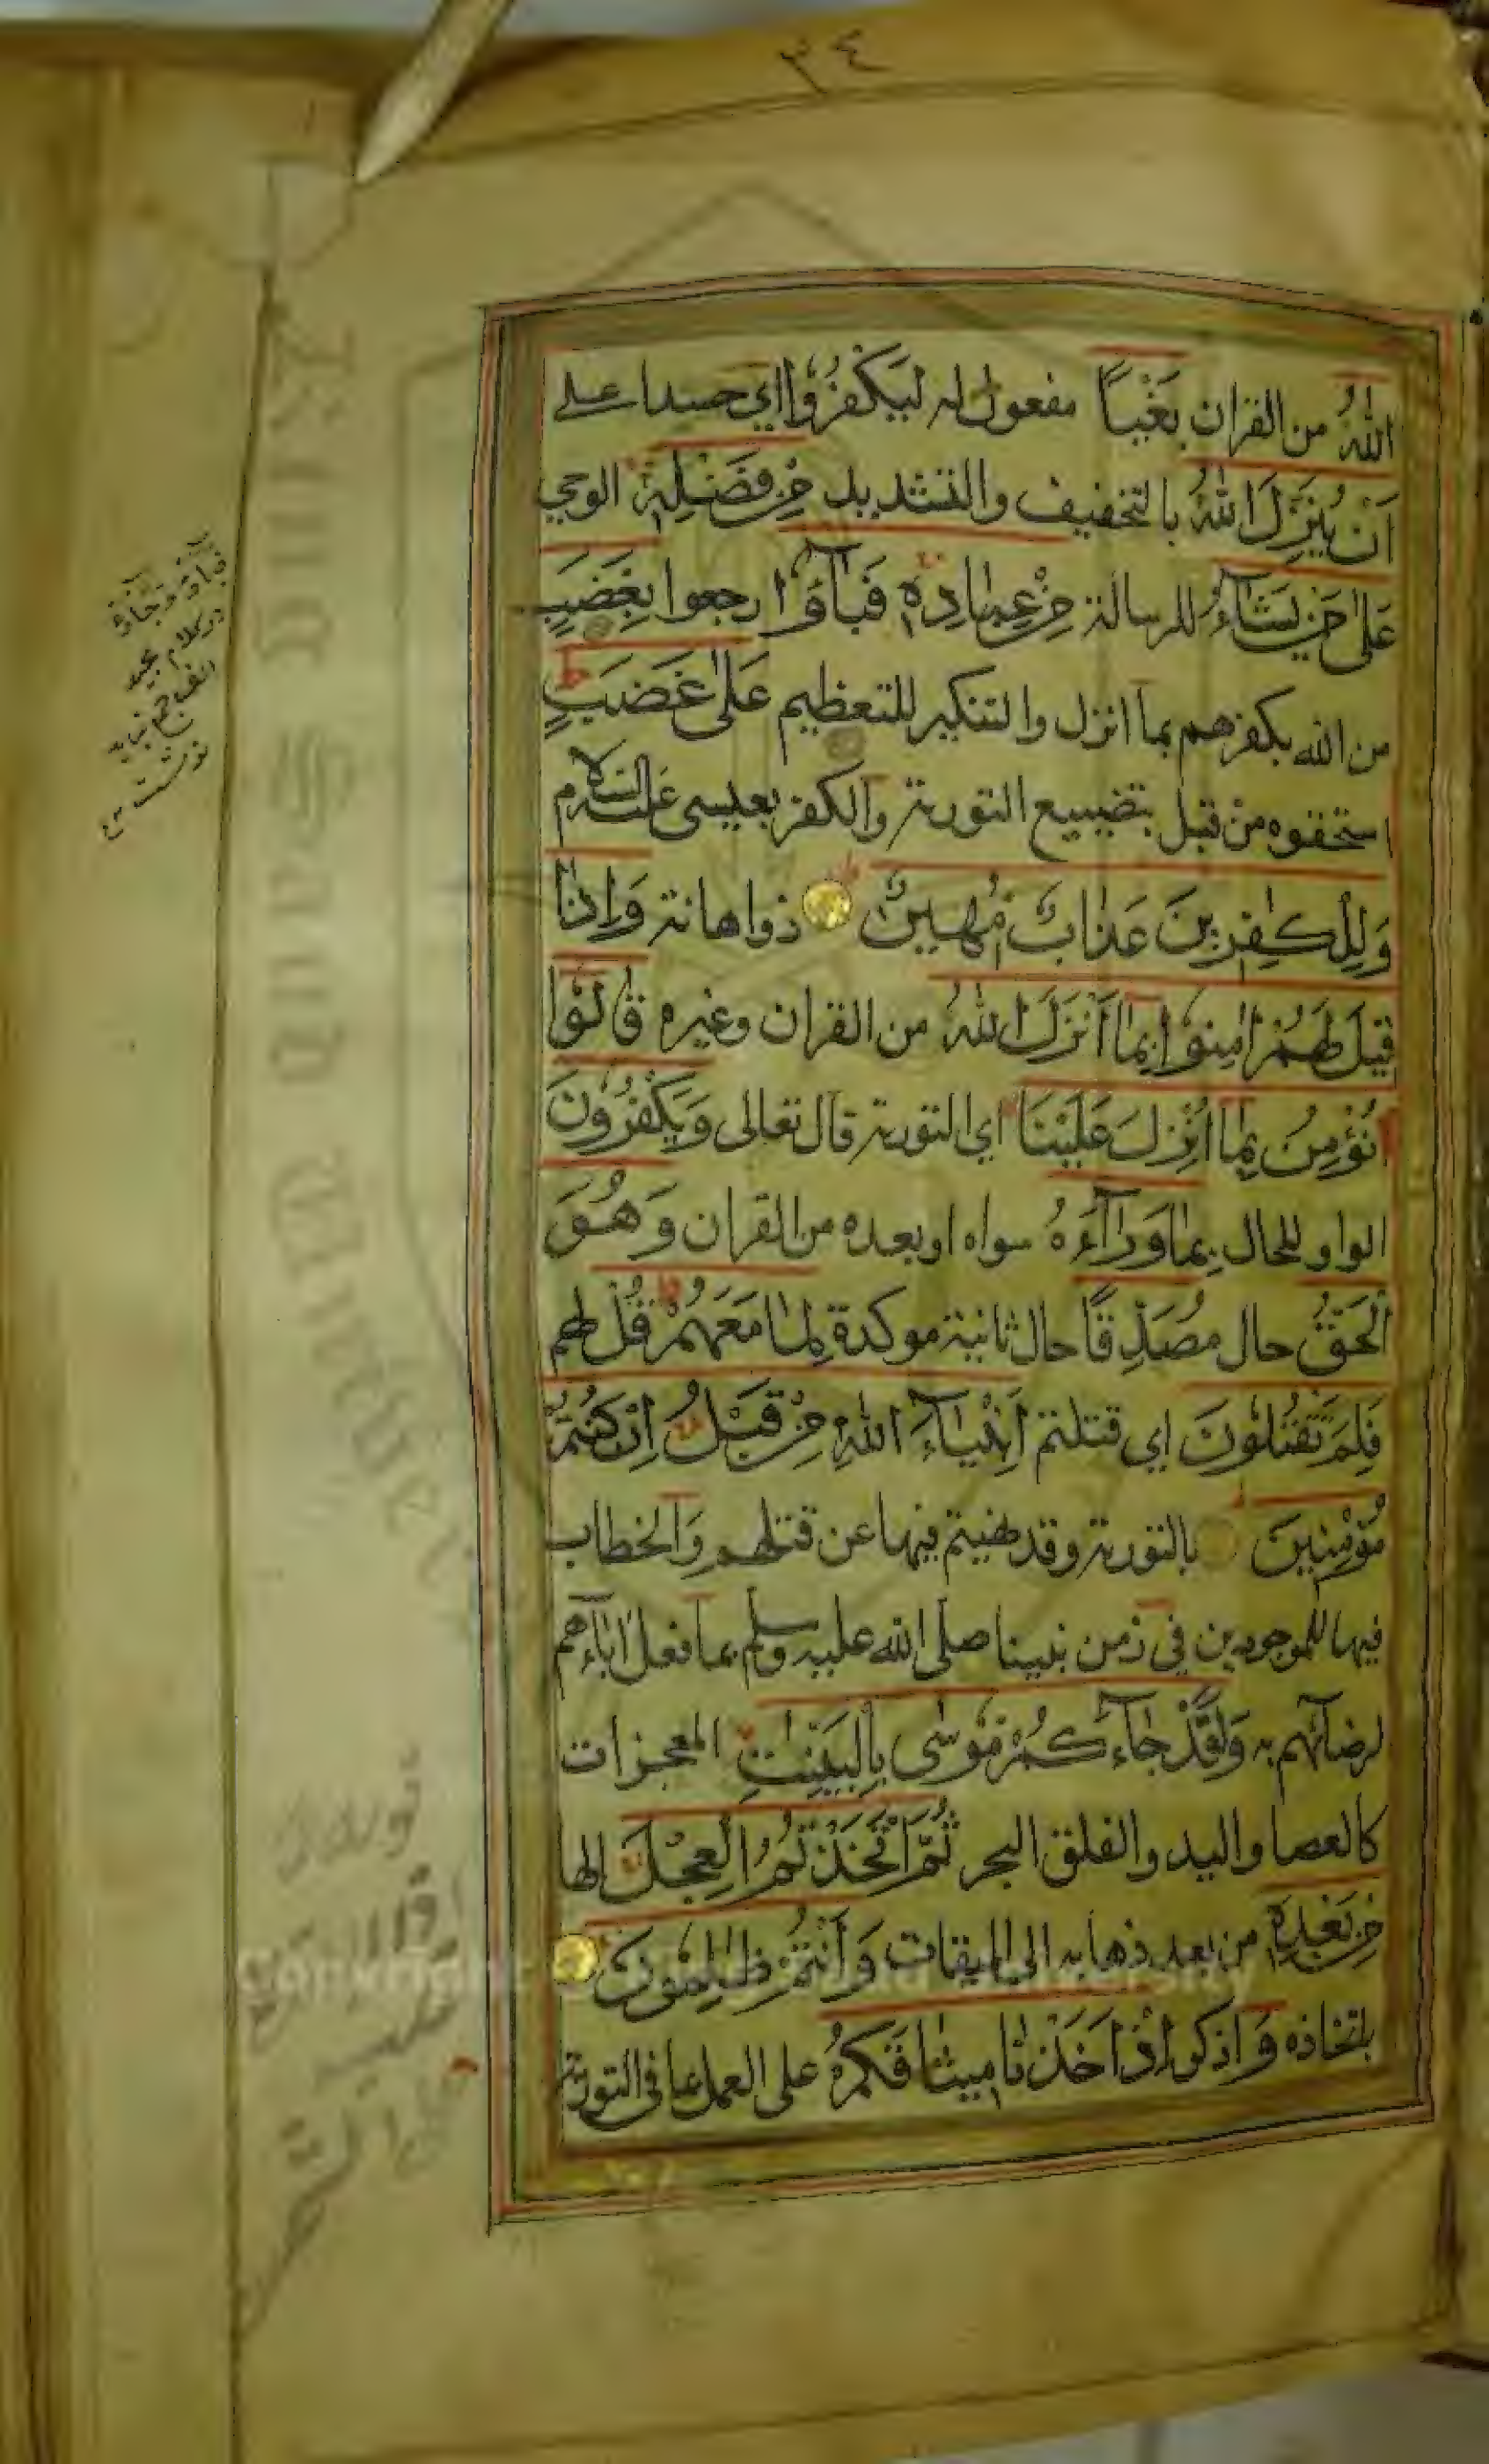 ٣٤
اللهُ من القران بَغْيًا مفعول له ليكفُرُوا اي حسدا على
اَنْ يُنَزِّلَ اللهُ بالتخفيف والتشديد مِنْ فَضْلِهٖ الوحي
عَلٰى مَنْ يَشَآءُ للرسالة مِنْ عِبَادِهٖ فَبَآؤُا رجعوا بِغَضَبٍ
من الله بكفرهم بما انزل والتنكير للتعظيم عَلٰى غَضَبٍ
استحقوه من قبل بتضييع التورية والكفر بعيسى عليه السلام
وَلِلْكٰفِرِينَ عَذَابٌ مُّهِينٌ ذو اهانة وَاِذَا
قِيلَ لَهُمْ اٰمِنُوا بِمَا اَنْزَلَ اللهُ من القران وغيره قَالُوا
نُؤْمِنُ بِمَا اُنْزِلَ عَلَيْنَا اي التورية قال تعالى وَيَكْفُرُونَ
الواو للحال بِمَا وَرَآءَهٗ سواه او بعده من القران وَهُوَ
الْحَقُّ حال مُصَدِّقًا حال ثانية موكدة لِمَا مَعَهُمْ قُلْ لهم
فَلِمَ تَقْتُلُونَ اي قتلتم اَنْبِيَآءَ اللهِ مِنْ قَبْلُ اِنْ كُنْتُمْ
مُؤْمِنِينَ بالتورية وقد نهيتم فيها عن قتلهم والخطاب
فيها للموجودين في زمن نبينا صلى الله عليه وسلم بما فعل اباءهم
لرضائهم به وَلَقَدْ جَآءَكُمْ مُوسٰى بِالْبَيِّنٰتِ المعجزات
كالعصا واليد والفلق البحر ثُمَّ اتَّخَذْتُمُ الْعِجْلَ الها
مِنْ بَعْدِهٖ من بعد ذهابه الى الميقات وَاَنْتُمْ ظٰلِمُونَ
باتخاذه وَاذكروا اِذْ اَخَذْنَا مِيثَاقَكُمْ على العمل بما في التورية
در كلام مجيد
King Saud University